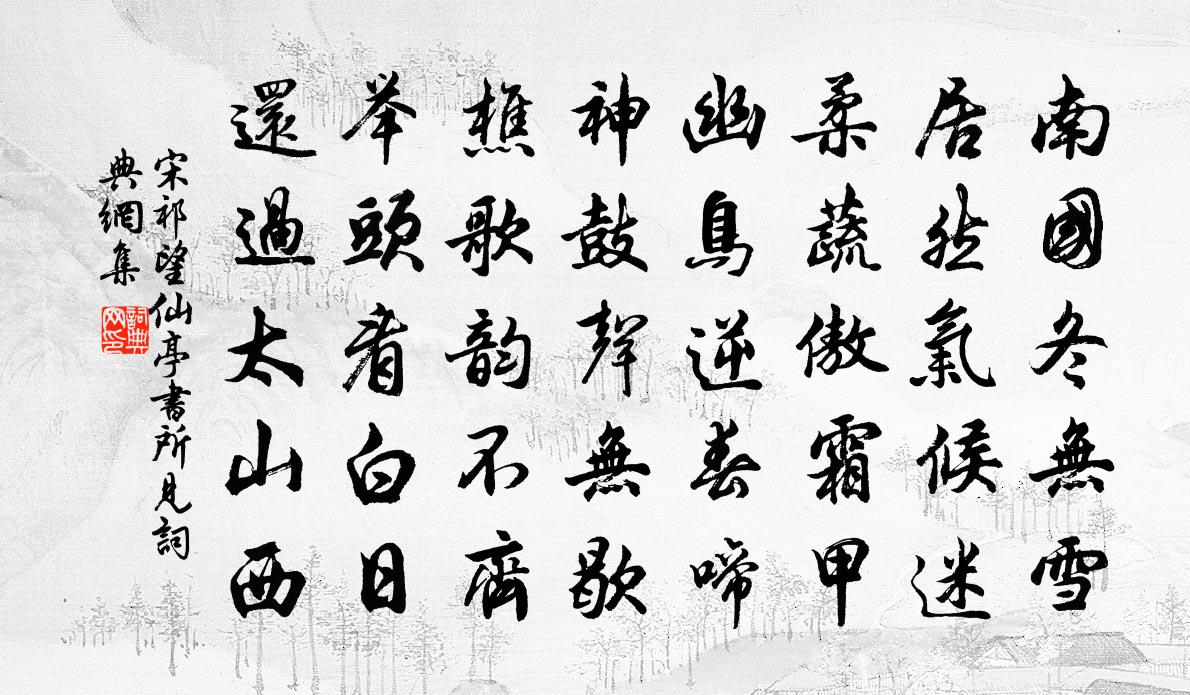 南國冬無雪
居然氣候迷
柔蔬傲霜甲
幽鳥逆春啼
神鼓聲無歇
樵歌韵不齊
举頭看白日
還過太山西
宋祁望仙亭書所見詞
典網集
詞典
网印